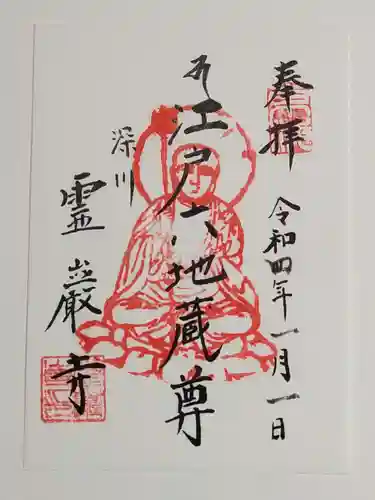 奉拝
令和四年一月一日
江戸六地蔵尊
深川
霊巌寺